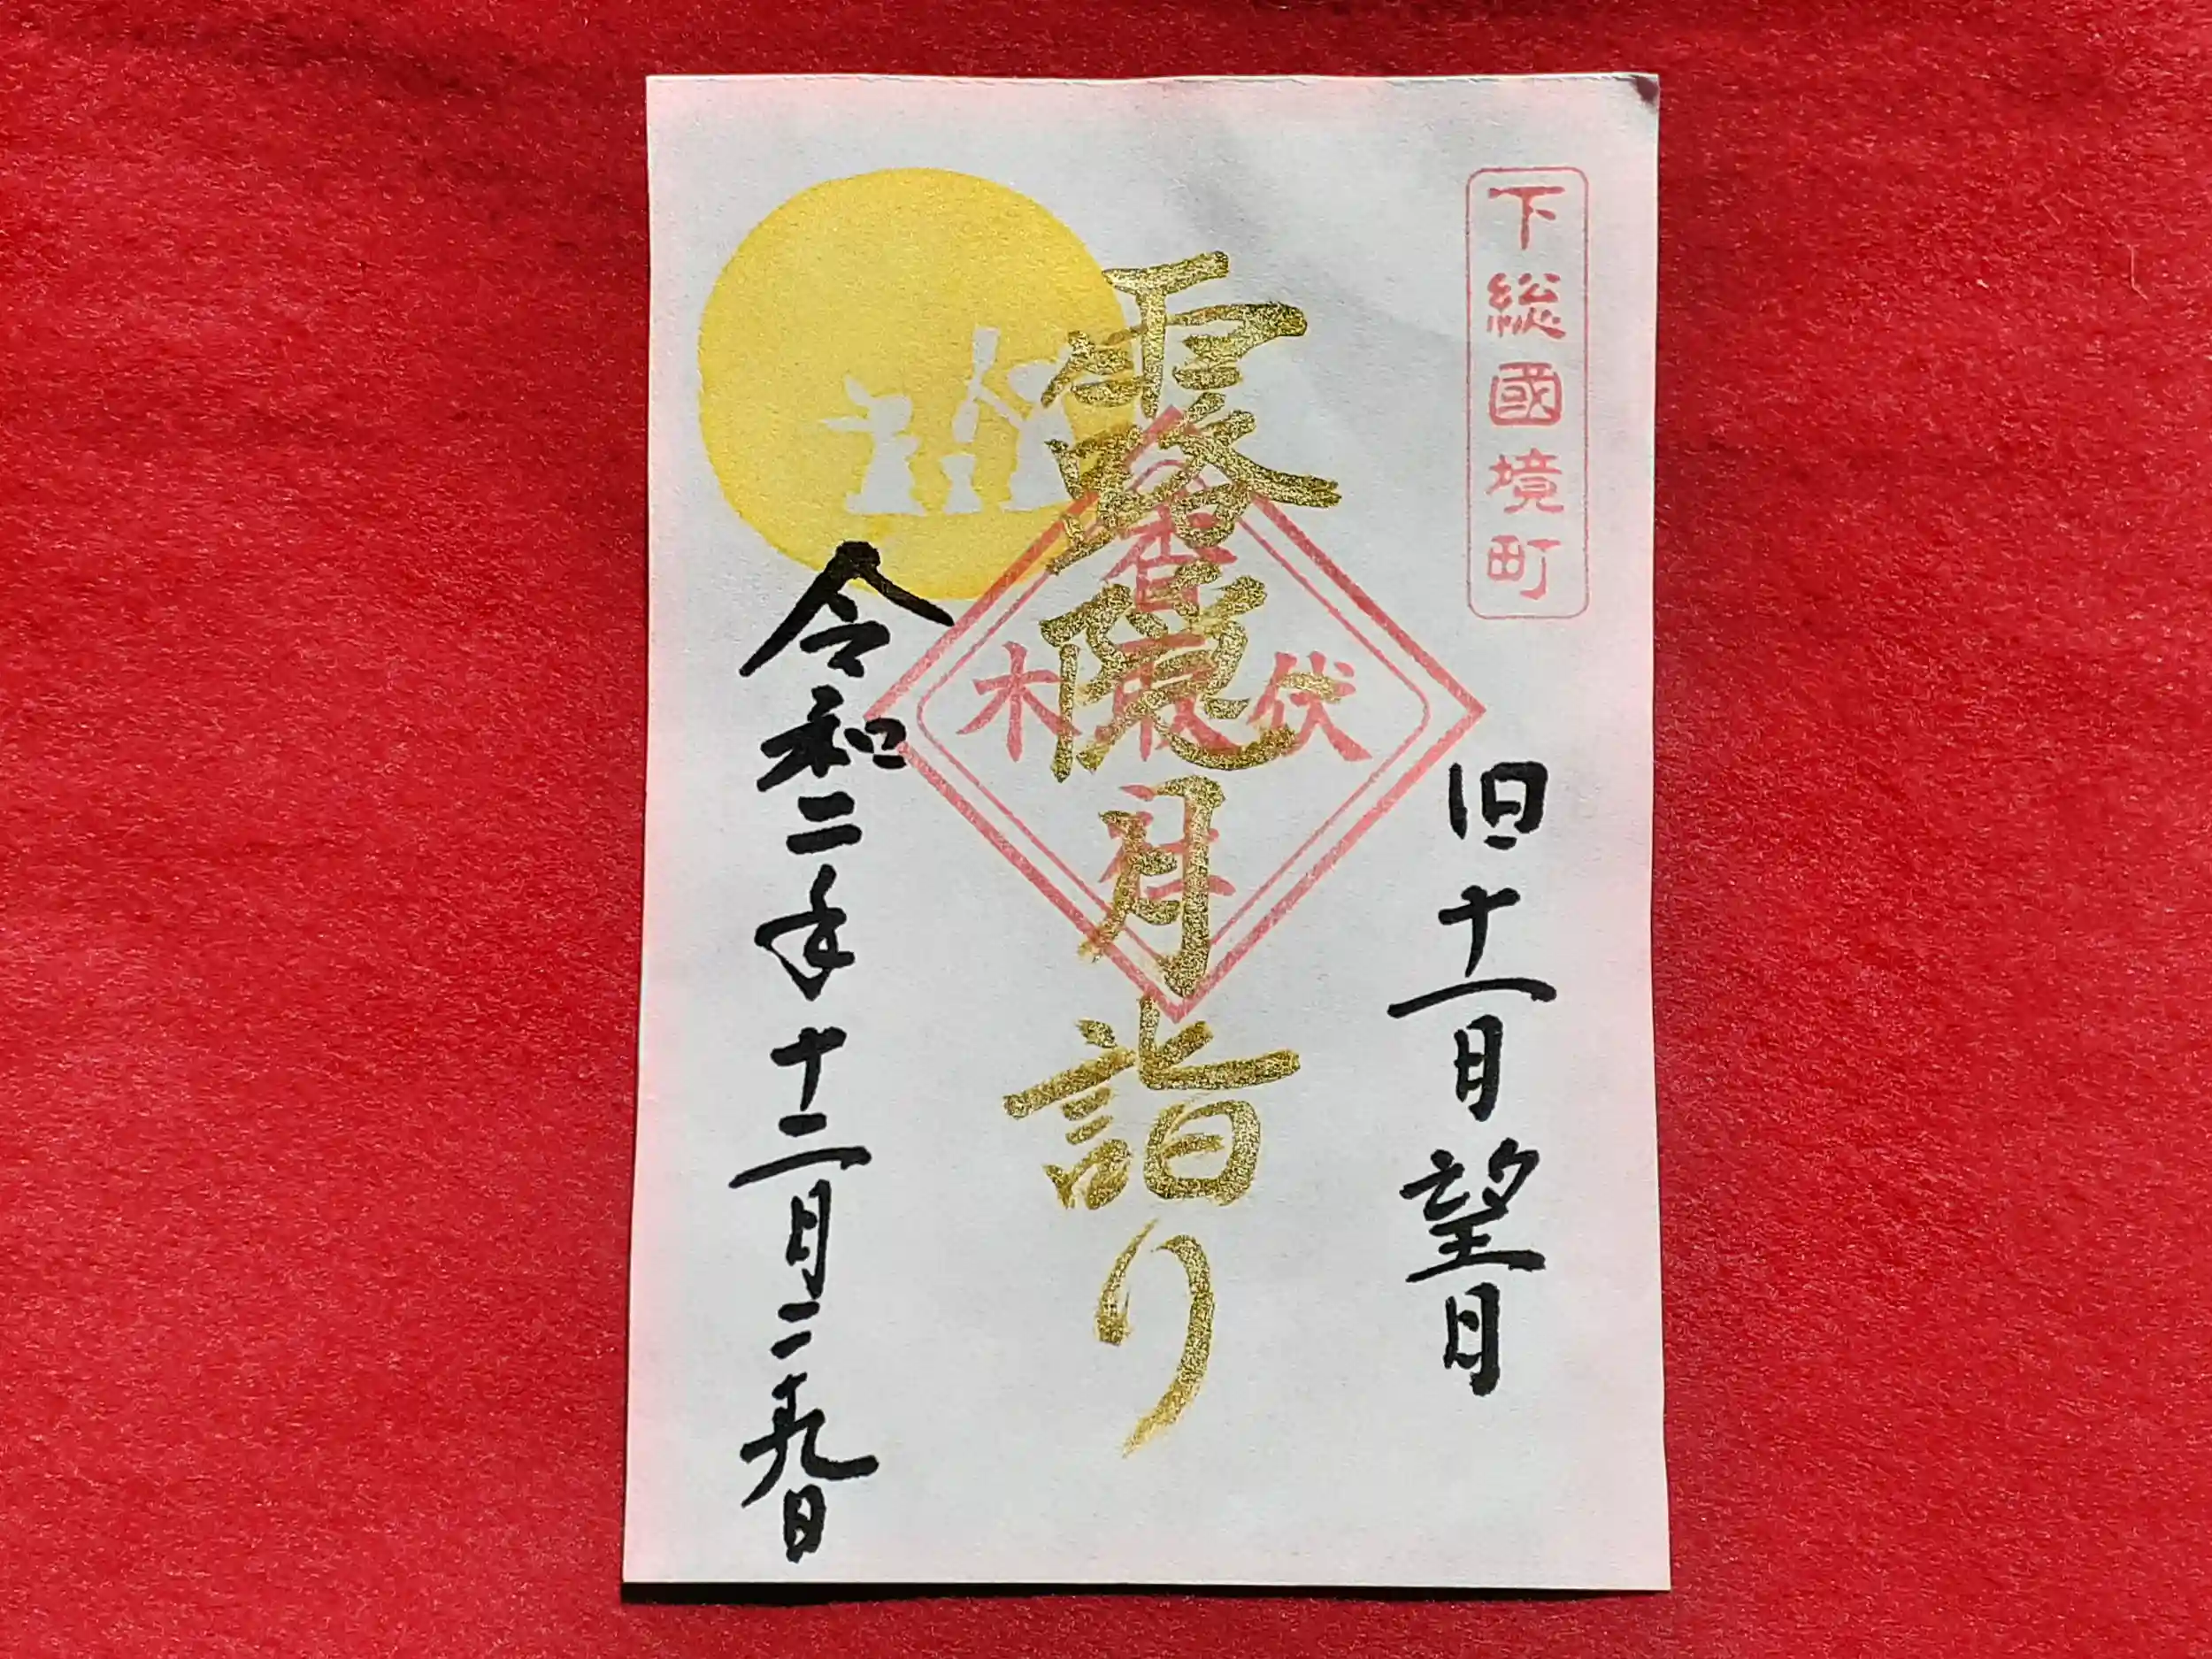 下総國境町
旧十一月望日
露隠月詣り
香取社
伏木
令和二年十二月二十九日